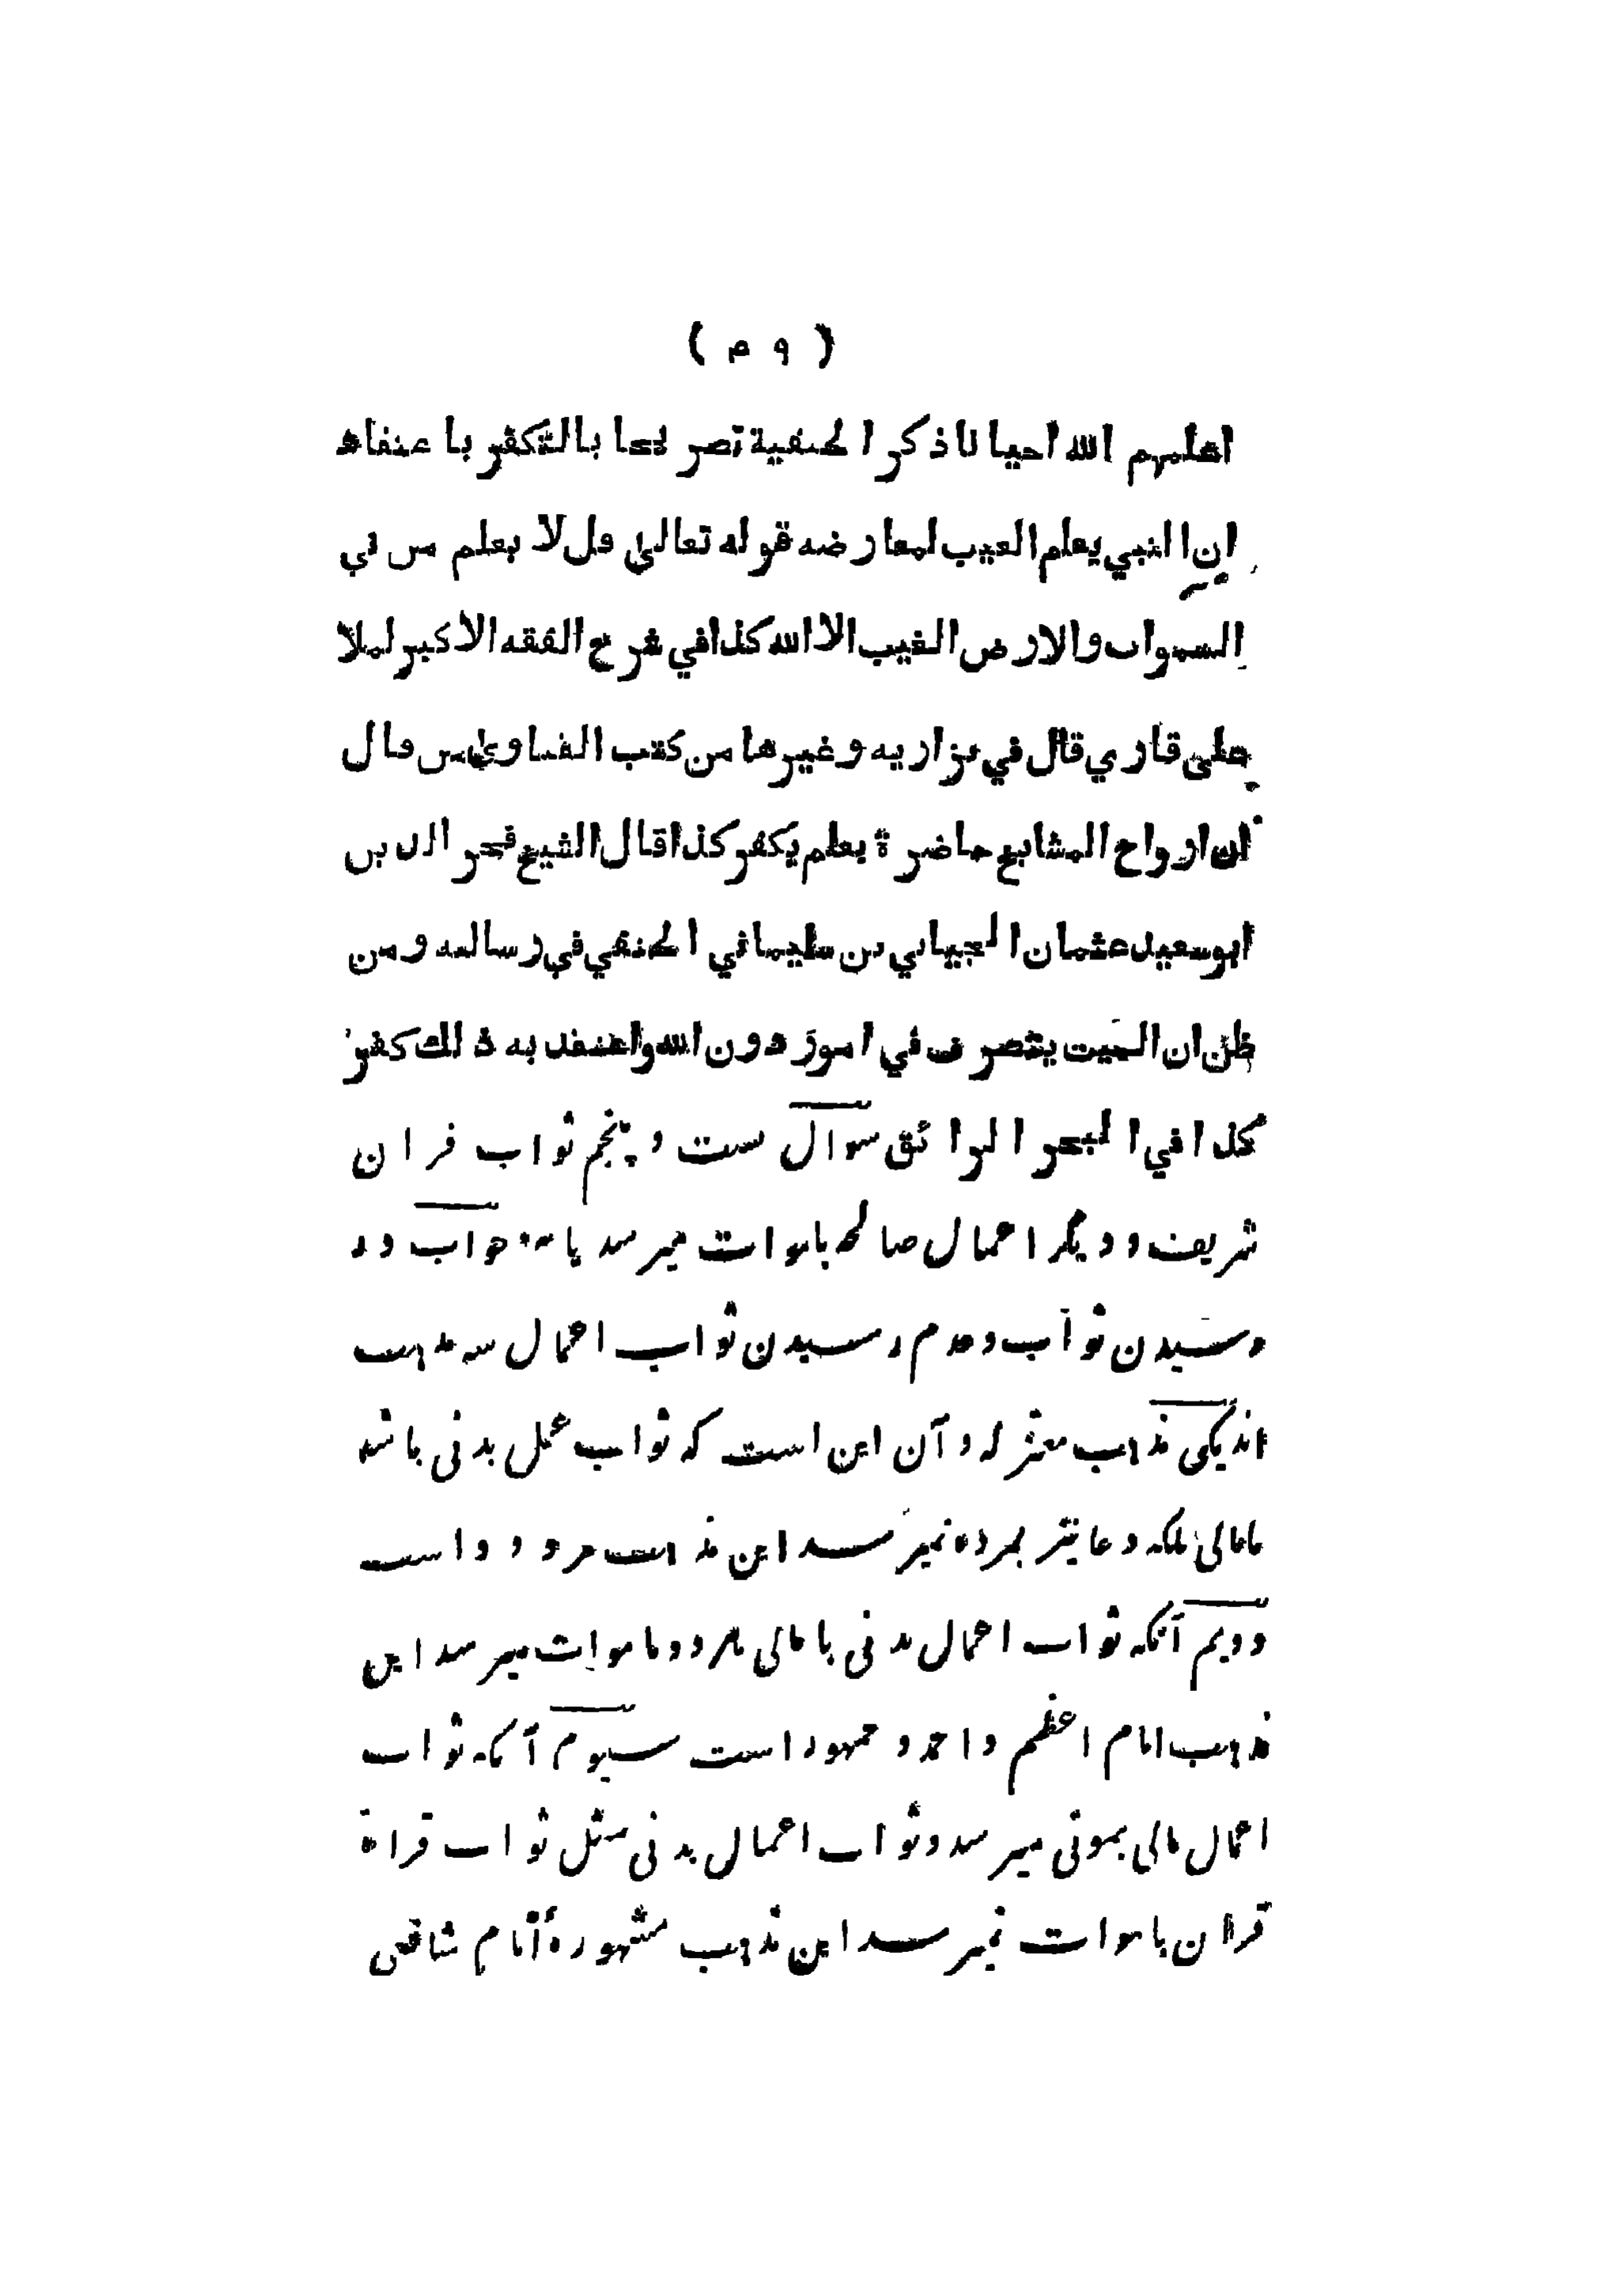 ( ٩ م )
اعلمهم الله احیانا ذکر الحنفیة تصریحا بالتکفیر باعتقاد
ان النبي یعلم الغیب لمعارضه قوله تعالیٰ قل لا یعلم من في
السموات والارض الغیب الا الله کذا في شرح الفقه الاکبر لملا
علی قاري قال في بزازیه وغیرها من کتب الفتاویٰ من قال
ان ارواح المشایخ حاضرة یعلم یکفر کذا قال الشیخ فخر الدین
ابوسعید عثمان الجیاني بن سلیماني الحنفي في رسالته ومن
ظن ان المیت یتصرف في امور دون الله واعتقد به ذلك کفر
کذا في البحر الرائق سوال بست و پنجم ثواب قران
شریف و دیگر اعمال صالحه باموات میرسد یا نه جواب در
رسیدن ثواب و عدم رسیدن ثواب اعمال سه مذهب
اند یکی مذهب معتزله و آن این است که ثواب عمل بدنی باشد
یا مالی بلکه دعا نیز بمرده نمیرسد این مذهب مردود است
دویم آنکه ثواب اعمال بدنی یا مالی هردو باموات میرسد این
مذهب امام اعظم و احمد و جمهور است سیوم آنکه ثواب
اعمال مالی بموتی میرسد و ثواب اعمال بدنی مثل ثواب قراة
قران باموات نمیرسد این مذهب مشهورهٔ امام شافعی